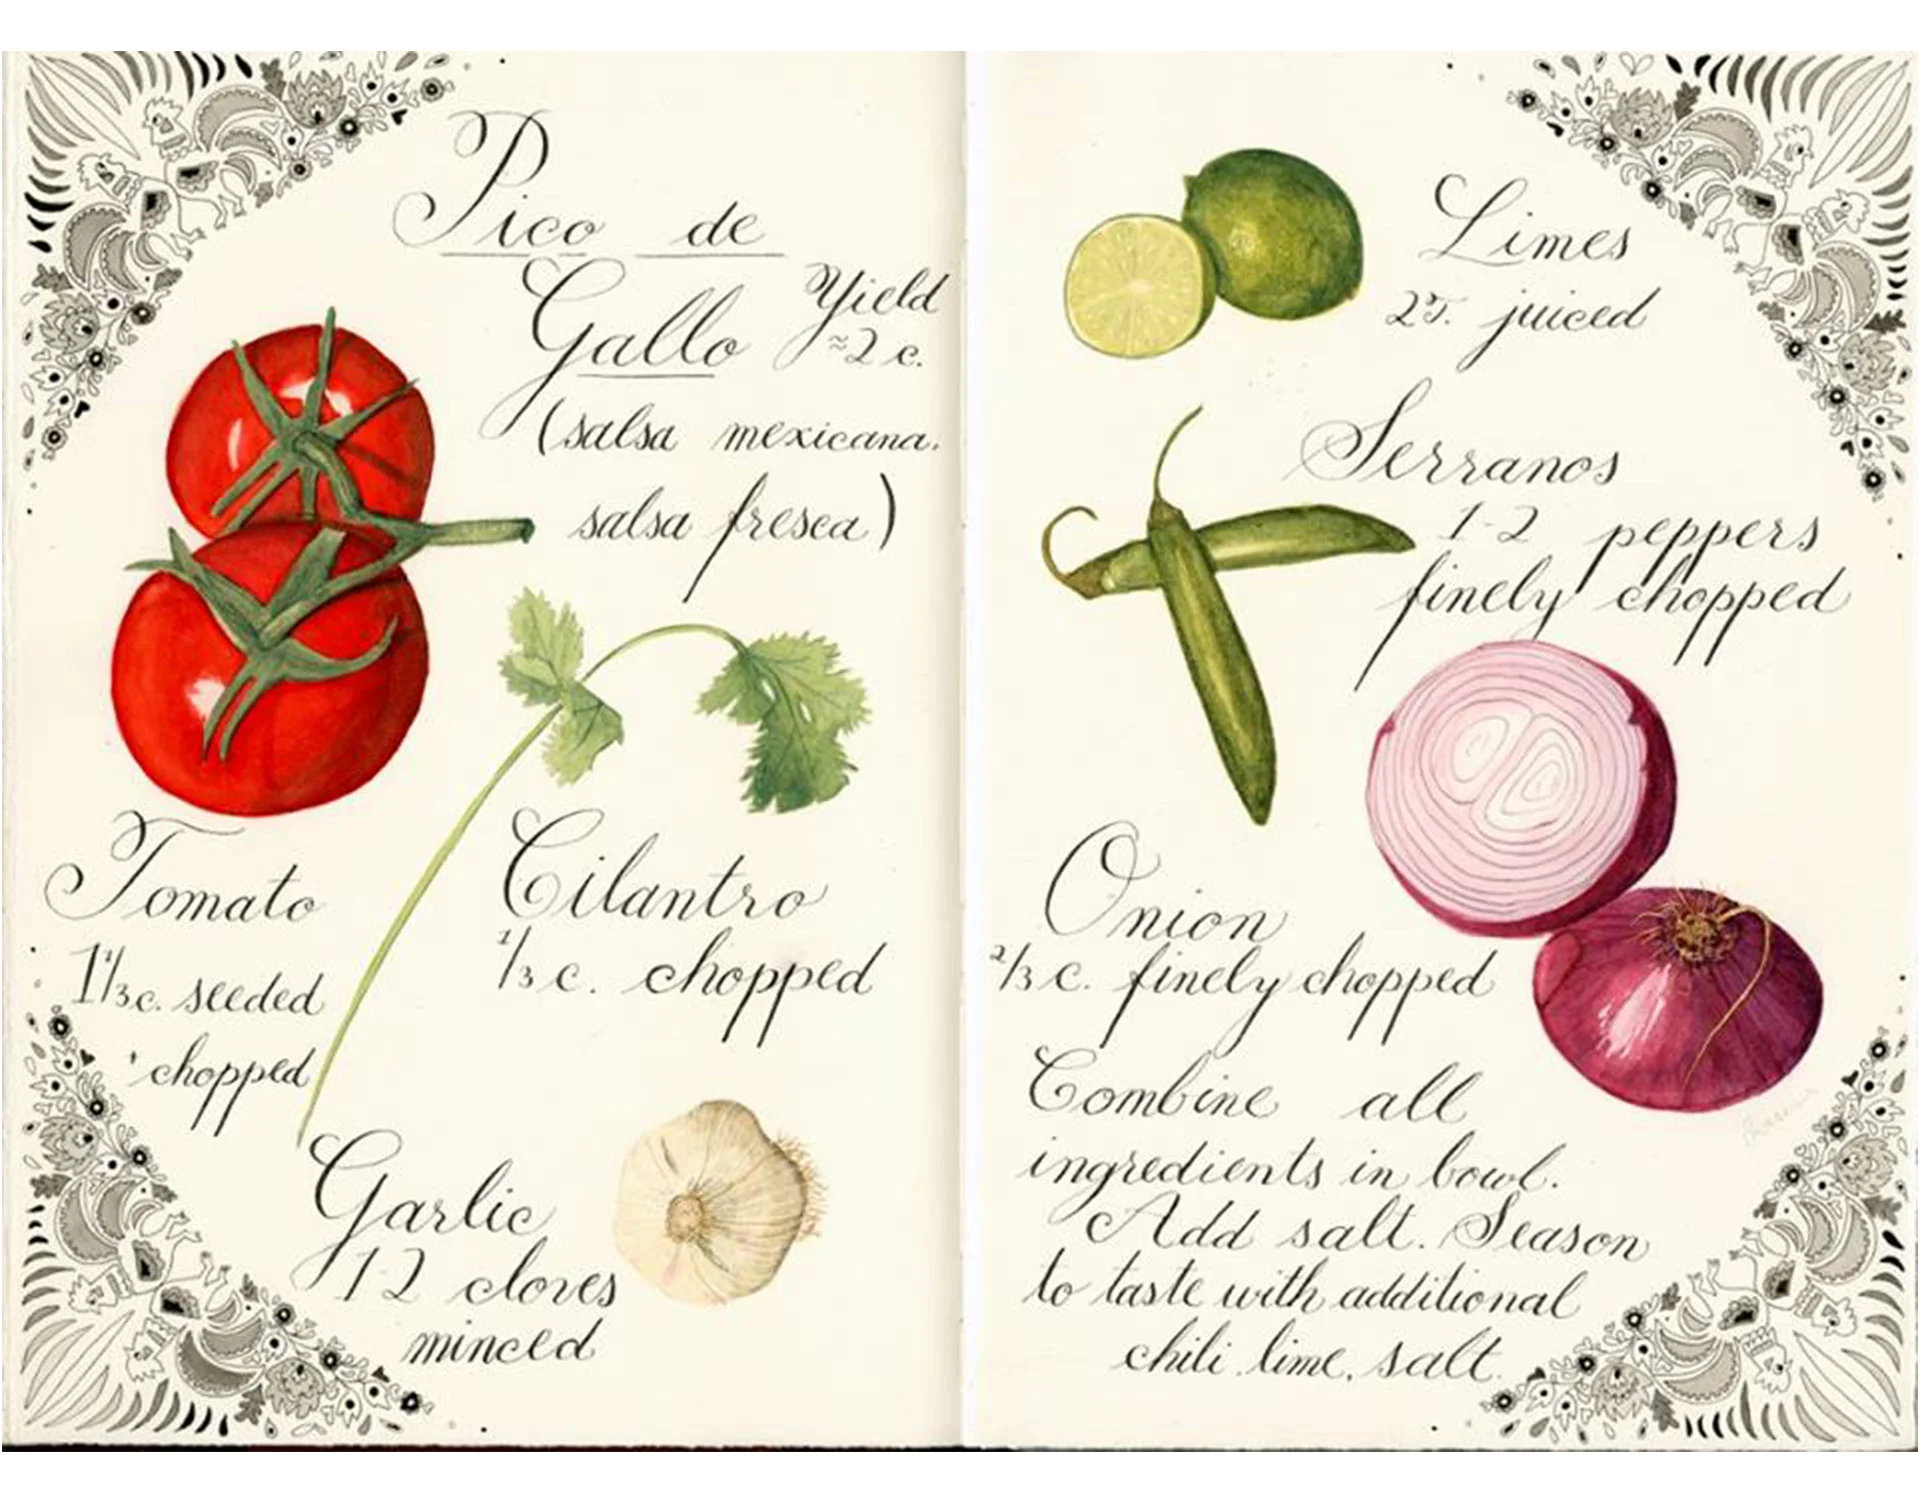 Pico de
Gallo
Yield
≈2 c.
(salsa mexicana,
salsa fresca)
Tomato
1 1/3 c. seeded
chopped
Cilantro
1/3 c. chopped
Garlic
1-2 cloves
minced
Limes
2T. juiced
Serranos
1-2 peppers
finely chopped
Onion
2/3 c. finely chopped
Combine all
ingredients in bowl.
Add salt. Season
to taste with additional
chili, lime, salt.